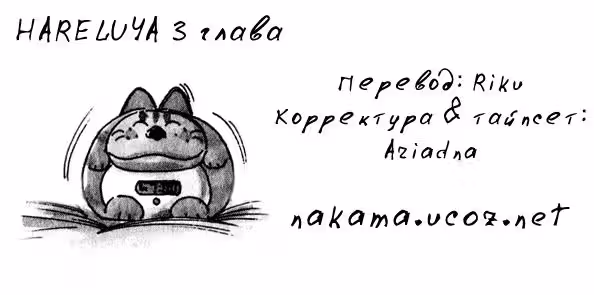 HARELUYA 3 глава
Перевод: Riku
Корректура & тайпсет:
Ariadna
nakama.ucoz.net